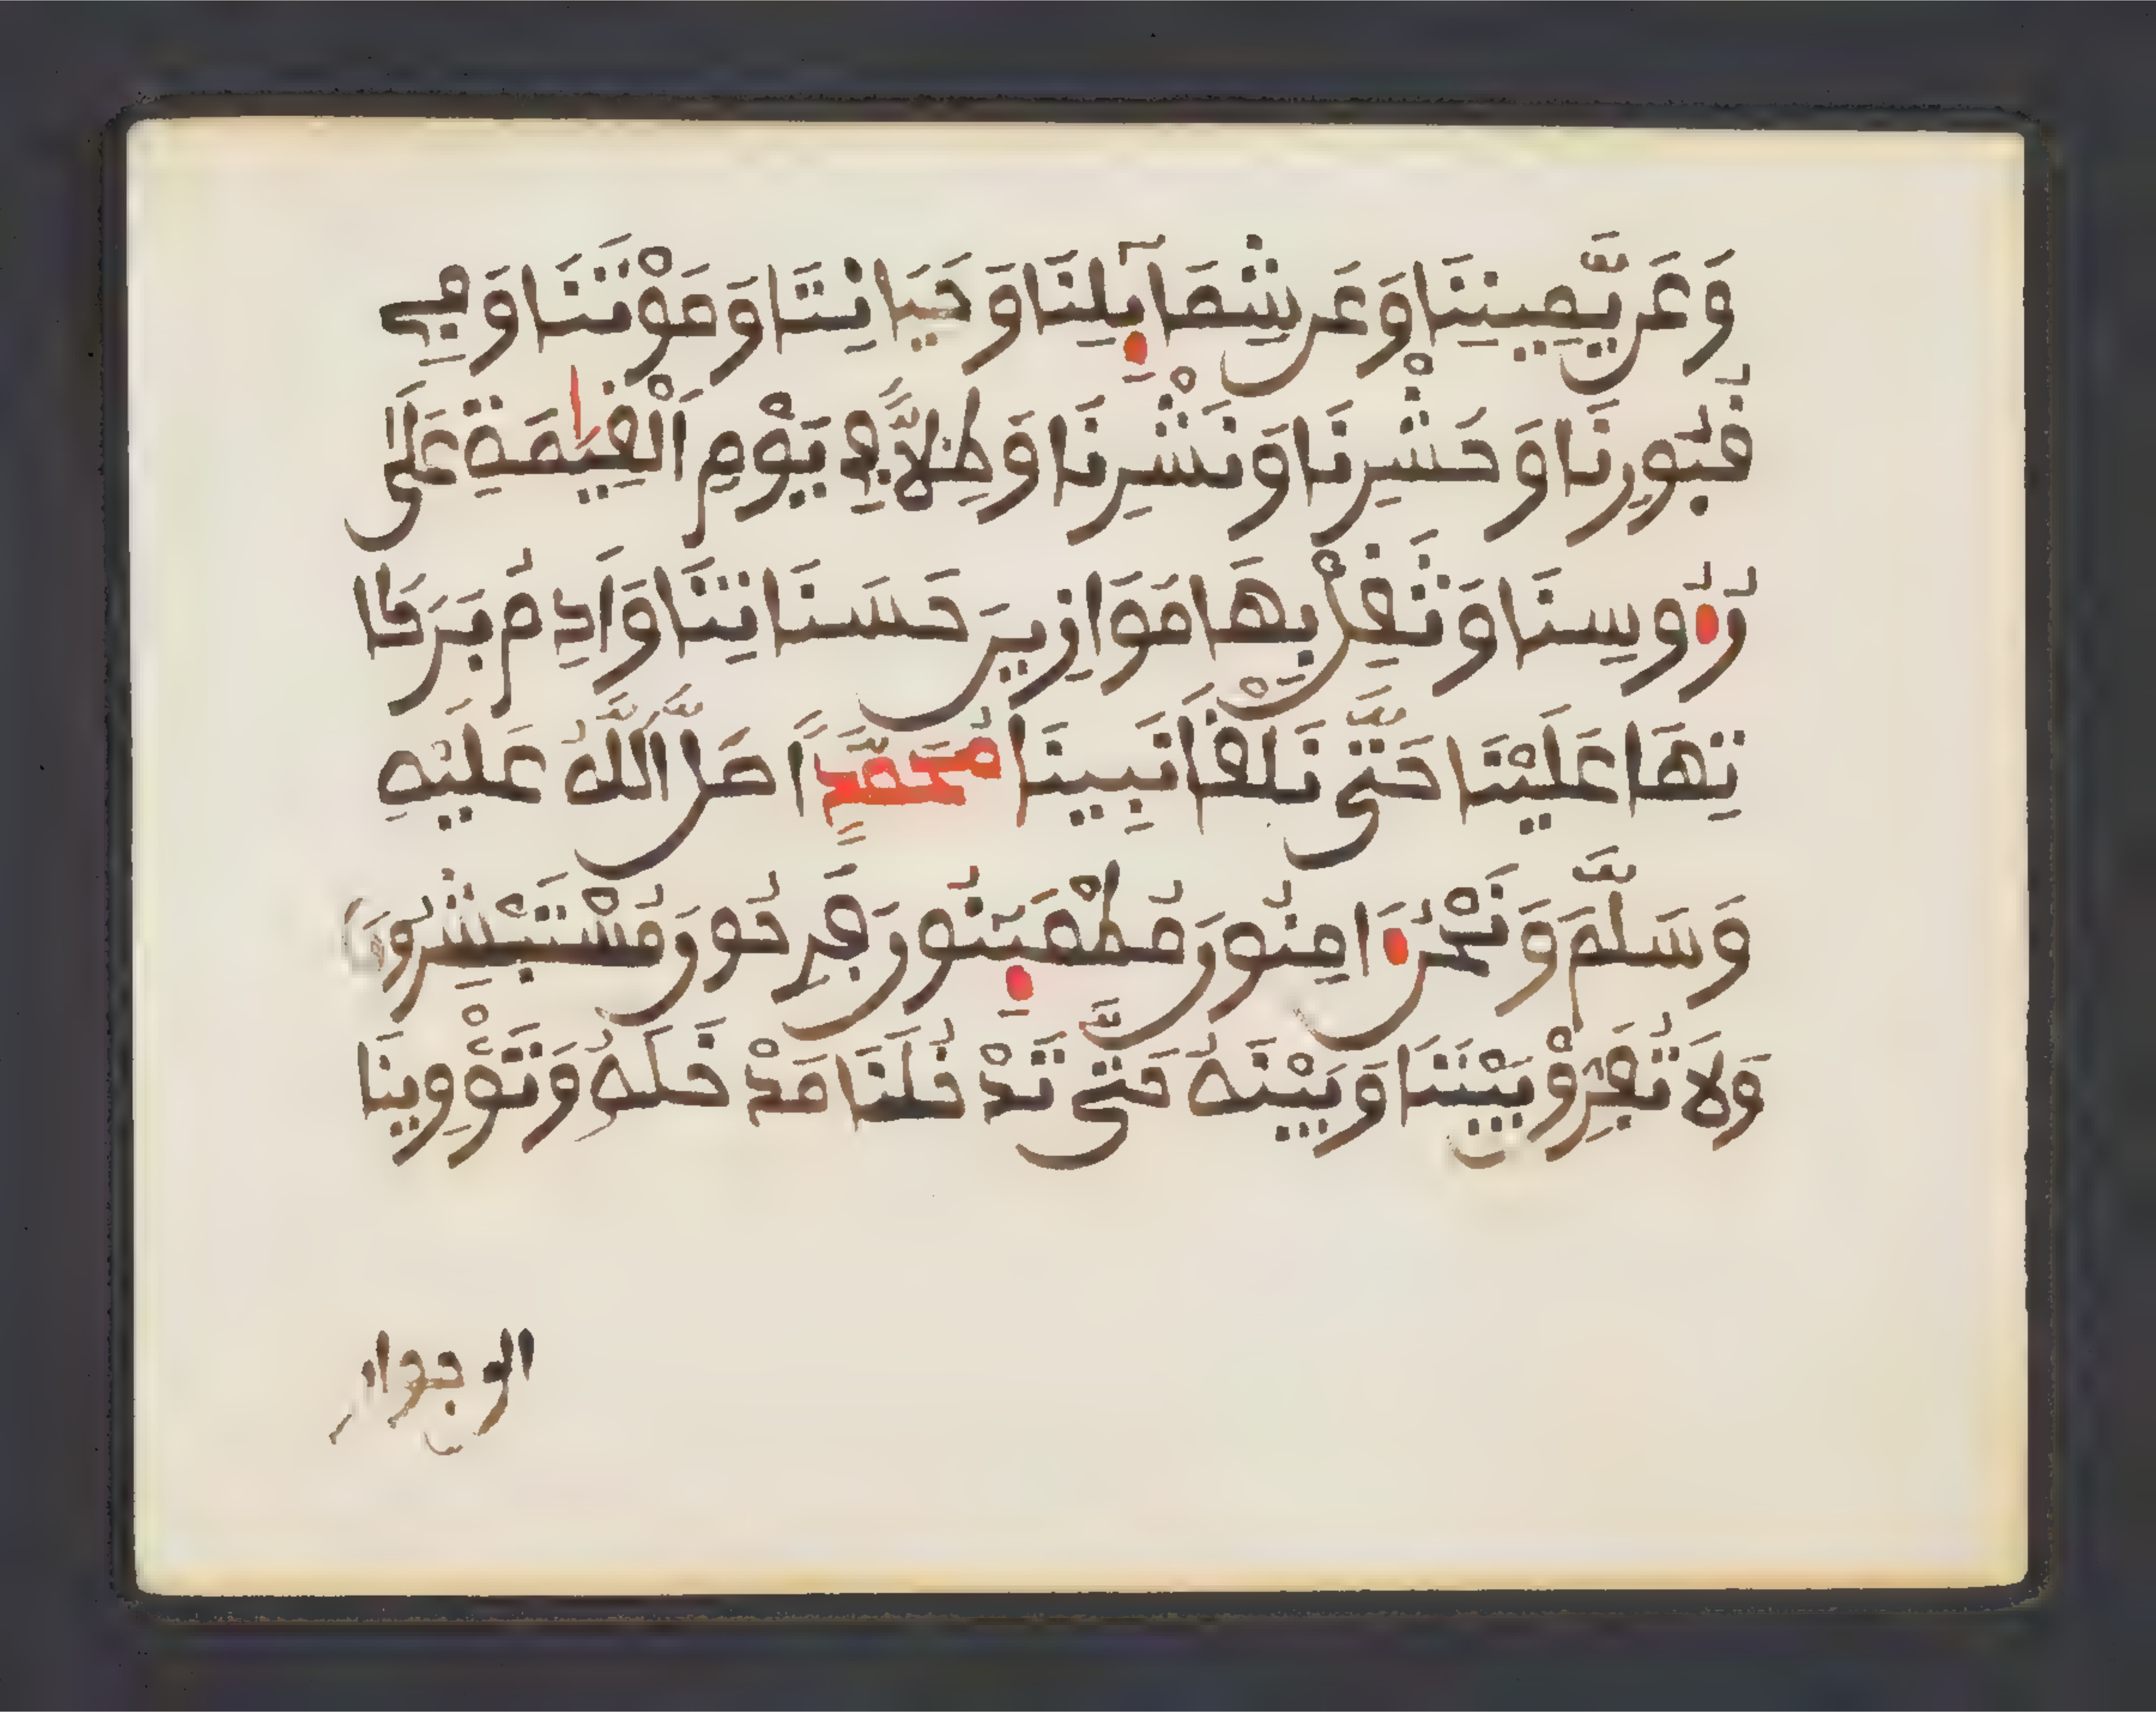 وَعَن يَّمِينِنَا وَعَن شِمَآئِلِنَا وَحَيَاتِنَا وَمَوْتِنَا وَفِي
قُبُورِنَا وَحَشْرِنَا وَنَشْرِنَا وَظِلاًّ فِي يَوْمِ الْقِيَٰمَةِ عَلَىٰ
رُءُوسِنَا وَثَقِّلْ بِهَا مَوَازِينَ حَسَنَاتِنَا وَأَدِمْ بَرَكَا
تِهَا عَلَيْنَا حَتَّى نَلْقَا نَبِينَا مُحَمَّداً صَلَّى اللَّهُ عَلَيْهِ
وَسَلَّمَ وَنَحْنُ ءَامِنُونَ مُطْمَئِنُّونَ فَرِحُونَ مُسْتَبْشِرُونَ
وَلاَ تُفَرِّقْ بَيْنَنَا وَبَيْنَهُ حَتَّى تُدْخِلَنَا مُدْخَلَهُ وَتُؤْوِينَا